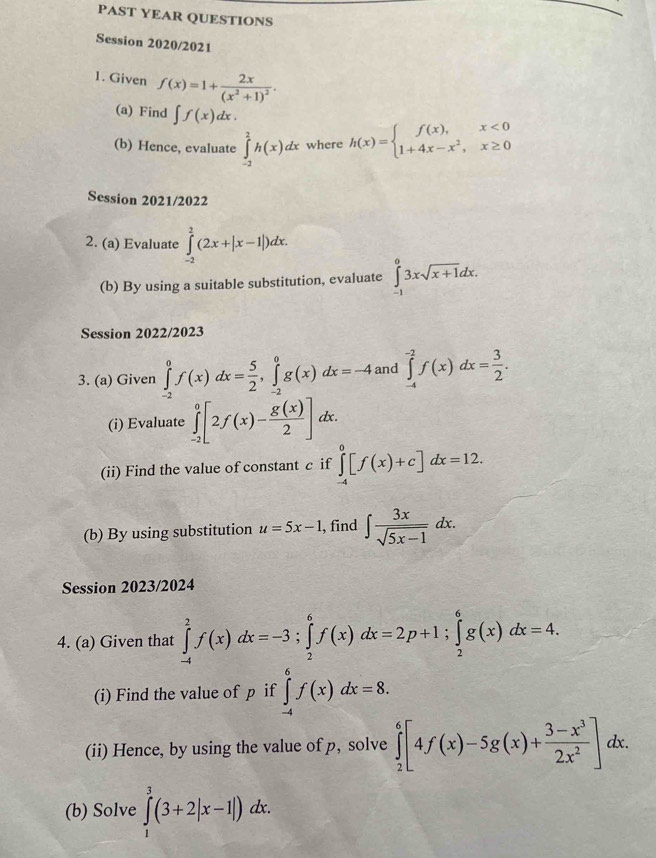 PAST YEAR QUESTIONS
Session 2020/2021
1. Given f(x) = 1 + 2x/(x² + 1)².
(a) Find ∫ f(x) dx.
(b) Hence, evaluate ∫₋₂² h(x) dx where h(x) = { f(x), x < 0; 1 + 4x − x², x ≥ 0
Session 2021/2022
2. (a) Evaluate ∫₋₂² (2x + |x − 1|) dx.
(b) By using a suitable substitution, evaluate ∫₋₁⁰ 3x√(x + 1) dx.
Session 2022/2023
3. (a) Given ∫₋₂⁰ f(x) dx = 5/2, ∫₋₂⁰ g(x) dx = −4 and ∫₋₄⁻² f(x) dx = 3/2.
(i) Evaluate ∫₋₂⁰ [2f(x) − g(x)/2] dx.
(ii) Find the value of constant c if ∫₋₄⁰ [f(x) + c] dx = 12.
(b) By using substitution u = 5x − 1, find ∫ 3x/√(5x − 1) dx.
Session 2023/2024
4. (a) Given that ∫₋₄² f(x) dx = −3 ; ∫₂⁶ f(x) dx = 2p + 1 ; ∫₂⁶ g(x) dx = 4.
(i) Find the value of p if ∫₋₄⁶ f(x) dx = 8.
(ii) Hence, by using the value of p, solve ∫₂⁶ [4f(x) − 5g(x) + (3 − x³)/(2x²)] dx.
(b) Solve ∫₁³ (3 + 2|x − 1|) dx.